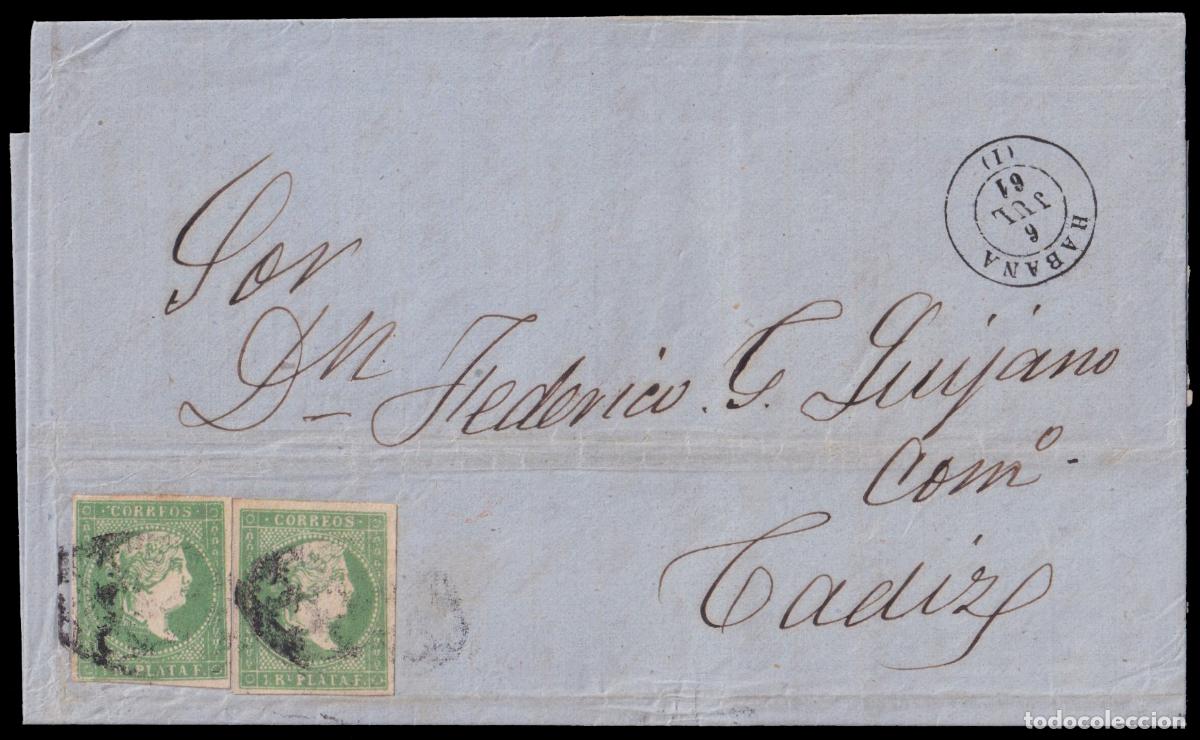 HABANA
6
JUL
61
(1)
Sor
Dn Federico G. Quijano
Como
Cadiz
CORREOS
1 Rl PLATA F.
CORREOS
1 Rl PLATA F.
todocoleccion